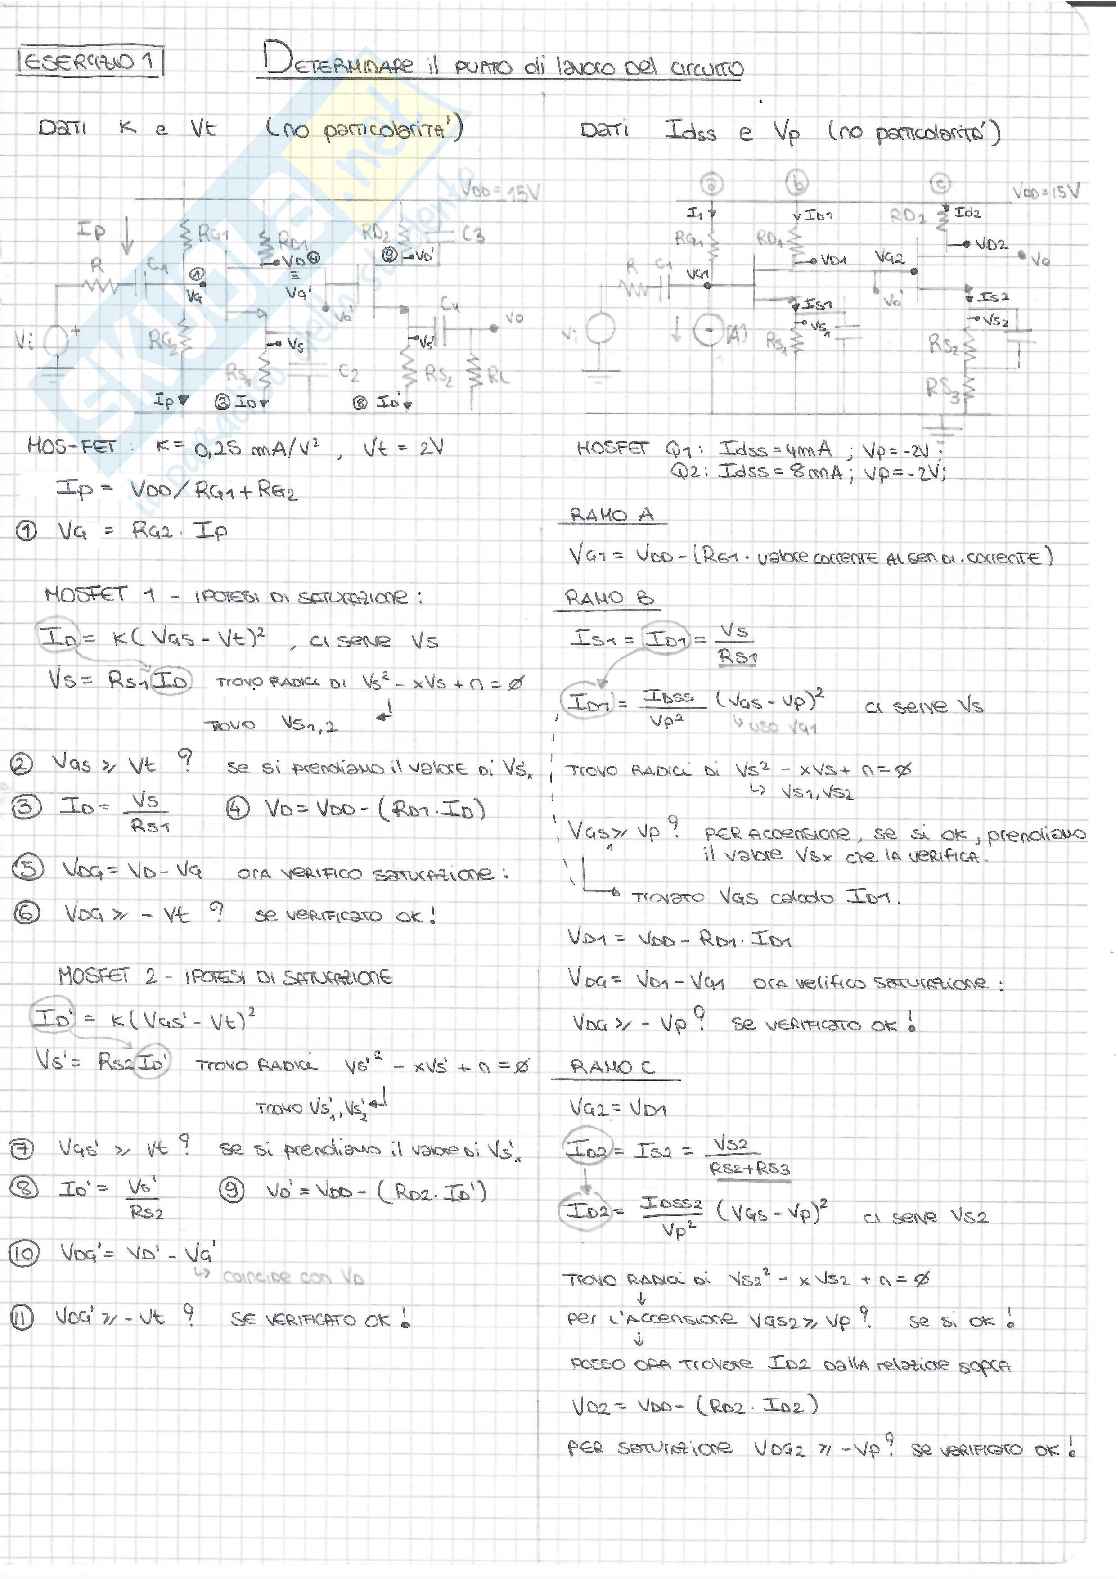 ESERCIZIO 1
DETERMINARE il PUNTO di lavoro DEL CIRCUITO
DATI K e Vt (no particolarità)
VDD=15V
Ip
RG1
RD1
RD2
C3
R
C1
VG
VD
VG'
VD'
Vo'
C4
Vo
Vi
RG2
VS
VS'
RS1
C2
RS2
RL
Ip
③ ID
⑧ ID'
MOS-FET : K = 0,25 mA/V² , Vt = 2V
Ip = VDD/RG1+RG2
① VG = RG2 · Ip
MOSFET 1 - IPOTESI DI SATURAZIONE :
ID = K(VGS - Vt)² , CI SERVE VS
VS = RS1 ID TROVO RADICI DI VS² - xVS + n = Ø
TROVO VS1,2
② VGS ≥ Vt ? se si prendiamo il valore di VSx
③ ID = VS / RS1 ④ VD = VDD - (RD1 · ID)
⑤ VDG = VD - VG ORA VERIFICO SATURAZIONE :
⑥ VDG ≥ - Vt ? se VERIFICATO OK!
MOSFET 2 - IPOTESI DI SATURAZIONE
ID' = K(VGS' - Vt)²
VS' = RS2 ID' TROVO RADICI VS'² - xVS' + n = Ø
TROVO VS'1, VS'2
⑦ VGS' ≥ Vt ? se si prendiamo il valore di VS'x
⑧ ID' = VS' / RS2 ⑨ VD' = VDD - (RD2 · ID')
⑩ VDG' = VD' - VG'
↳ coincide con VD
⑪ VDG' ≥ - Vt ? SE VERIFICATO OK!
DATI Idss e Vp (no particolarità)
ⓐ ⓑ ⓒ
VDD=15V
I1
ID1
RD2
Id2
RG1
RD1
VD2
VG1
VD1
VG2
Vo
R
C1
IS1
Vo'
IS2
Vi
VS1
VS2
RS1
RS2
RS3
MOSFET Q1: Idss = 4mA ; Vp = -2V ;
Q2: Idss = 8mA ; Vp = -2V;
RAMO A
VG1 = VDD - (RG1 · valore CORRENTE AL GEN DI. CORRENTE)
RAMO B
IS1 = ID1 = VS / RS1
ID1 = IDSS / Vp² (VGS - Vp)² ci serve VS
↳ uso VG1
TROVO RADICI DI VS² - xVS + n = Ø
↳ VS1, VS2
VGS ≥ Vp ? PER ACCENSIONE, se si OK, prendiamo
il valore VSx che la verifica.
TROVATO VGS calcolo ID1.
VD1 = VDD - RD1 · ID1
VDG = VD1 - VG1 ORA verifico SATURAZIONE :
VDG ≥ - Vp ? se VERIFICATO OK!
RAMO C
VG2 = VD1
ID2 = IS2 = VS2 / RS2+RS3
ID2 = IDSS2 / Vp² (VGS - Vp)² ci serve VS2
TROVO RADICI DI VS2² - x VS2 + n = Ø
per l'ACCENSIONE VGS2 ≥ Vp ? se si OK!
POSSO ORA TROVARE ID2 DALLA relazione sopra
VD2 = VDD - (RD2 · ID2)
PER SATURAZIONE VDG2 ≥ -Vp ? se VERIFICATO OK!